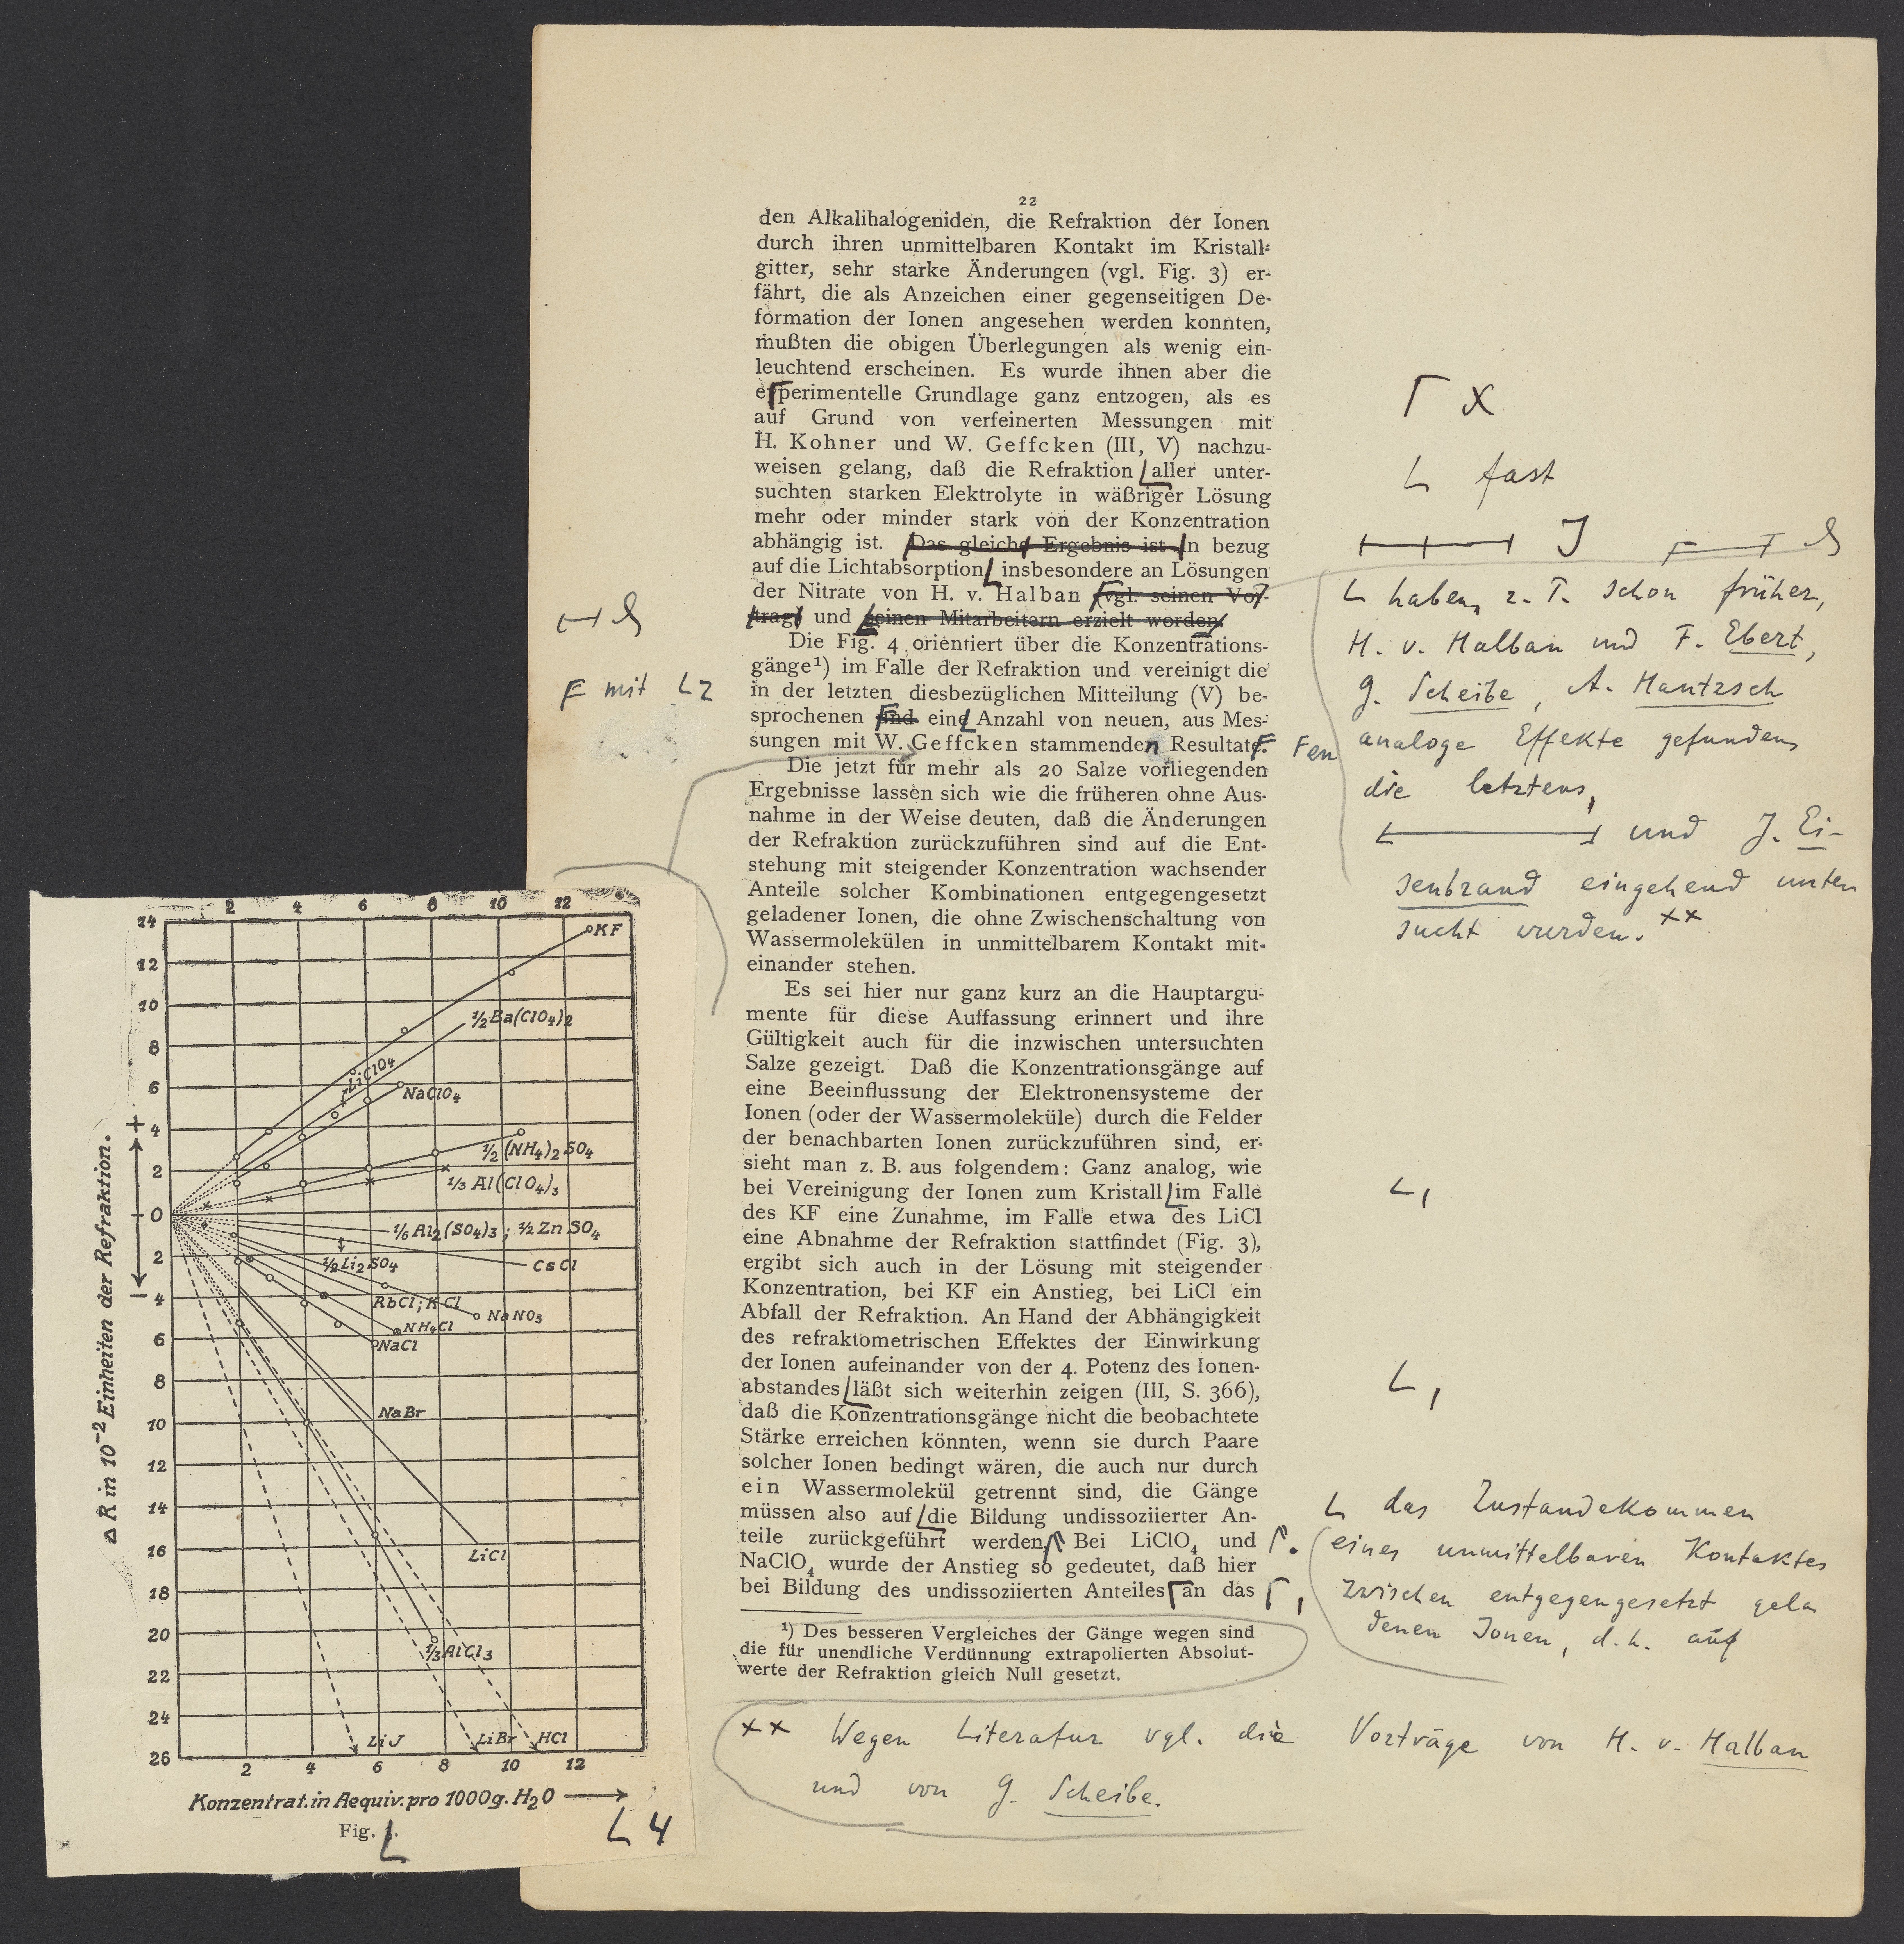 22
den Alkalihalogeniden, die Refraktion der Ionen
durch ihren unmittelbaren Kontakt im Kristall-
gitter, sehr starke Änderungen (vgl. Fig. 3) er-
fährt, die als Anzeichen einer gegenseitigen De-
formation der Ionen angesehen werden konnten,
mußten die obigen Überlegungen als wenig ein-
leuchtend erscheinen. Es wurde ihnen aber die
experimentelle Grundlage ganz entzogen, als es
auf Grund von verfeinerten Messungen mit
H. Kohner und W. Geffcken (III, V) nachzu-
weisen gelang, daß die Refraktion aller unter-
suchten starken Elektrolyte in wäßriger Lösung
mehr oder minder stark von der Konzentration
abhängig ist. Das gleiche Ergebnis ist In bezug
auf die Lichtabsorption insbesondere an Lösungen
der Nitrate von H. v. Halban (vgl. seinen Vor-
trag) und seinen Mitarbeitern erzielt worden
Die Fig. 4 orientiert über die Konzentrations-
gänge¹) im Falle der Refraktion und vereinigt die
in der letzten diesbezüglichen Mitteilung (V) be-
sprochenen und eine Anzahl von neuen, aus Mes-
sungen mit W. Geffcken stammenden Resultate.
Die jetzt für mehr als 20 Salze vorliegenden
Ergebnisse lassen sich wie die früheren ohne Aus-
nahme in der Weise deuten, daß die Änderungen
der Refraktion zurückzuführen sind auf die Ent-
stehung mit steigender Konzentration wachsender
Anteile solcher Kombinationen entgegengesetzt
geladener Ionen, die ohne Zwischenschaltung von
Wassermolekülen in unmittelbarem Kontakt mit-
einander stehen.
Es sei hier nur ganz kurz an die Hauptargu-
mente für diese Auffassung erinnert und ihre
Gültigkeit auch für die inzwischen untersuchten
Salze gezeigt. Daß die Konzentrationsgänge auf
eine Beeinflussung der Elektronensysteme der
Ionen (oder der Wassermoleküle) durch die Felder
der benachbarten Ionen zurückzuführen sind, er-
sieht man z. B. aus folgendem: Ganz analog, wie
bei Vereinigung der Ionen zum Kristall im Falle
des KF eine Zunahme, im Falle etwa des LiCl
eine Abnahme der Refraktion stattfindet (Fig. 3),
ergibt sich auch in der Lösung mit steigender
Konzentration, bei KF ein Anstieg, bei LiCl ein
Abfall der Refraktion. An Hand der Abhängigkeit
des refraktometrischen Effektes der Einwirkung
der Ionen aufeinander von der 4. Potenz des Ionen-
abstandes läßt sich weiterhin zeigen (III, S. 366),
daß die Konzentrationsgänge nicht die beobachtete
Stärke erreichen könnten, wenn sie durch Paare
solcher Ionen bedingt wären, die auch nur durch
ein Wassermolekül getrennt sind, die Gänge
müssen also auf die Bildung undissoziierter An-
teile zurückgeführt werden Bei LiClO₄ und
NaClO₄ wurde der Anstieg so gedeutet, daß hier
bei Bildung des undissoziierten Anteiles an das
¹) Des besseren Vergleiches der Gänge wegen sind
die für unendliche Verdünnung extrapolierten Absolut-
werte der Refraktion gleich Null gesetzt.
×× Wegen Literatur vgl. die Vorträge von H. v. Halban
und von G. Scheibe.
x
fast
J
haben, z. T. schon früher,
H. v. Halban und F. Ebert,
G. Scheibe, A. Hantzsch
analoge Effekte gefunden,
die letztens,
und J. Ei-
senbrand eingehend unter
sucht wurden. ××
en
mit
,
,
das Zustandekommen
eines unmittelbaren Kontaktes
zwischen entgegengesetzt gela
denen Ionen, d. h. auf
.
,
2 4 6 8 10 12
14
12
10
8
6
+
4
2
0
2
−
4
6
8
10
12
14
16
18
20
22
24
26
Δ R in 10⁻² Einheiten der Refraktion.
KF
½ Ba(ClO₄)₂
LiClO₄
NaClO₄
½ (NH₄)₂SO₄
⅓ Al(ClO₄)₃
⅙ Al₂(SO₄)₃; ½ ZnSO₄
½ Li₂SO₄
CsCl
RbCl; KCl
NaNO₃
NH₄Cl
NaCl
NaBr
LiCl
⅓ AlCl₃
LiJ
LiBr
HCl
2 4 6 8 10 12
Konzentrat. in Aequiv. pro 1000g. H₂O
Fig.
4